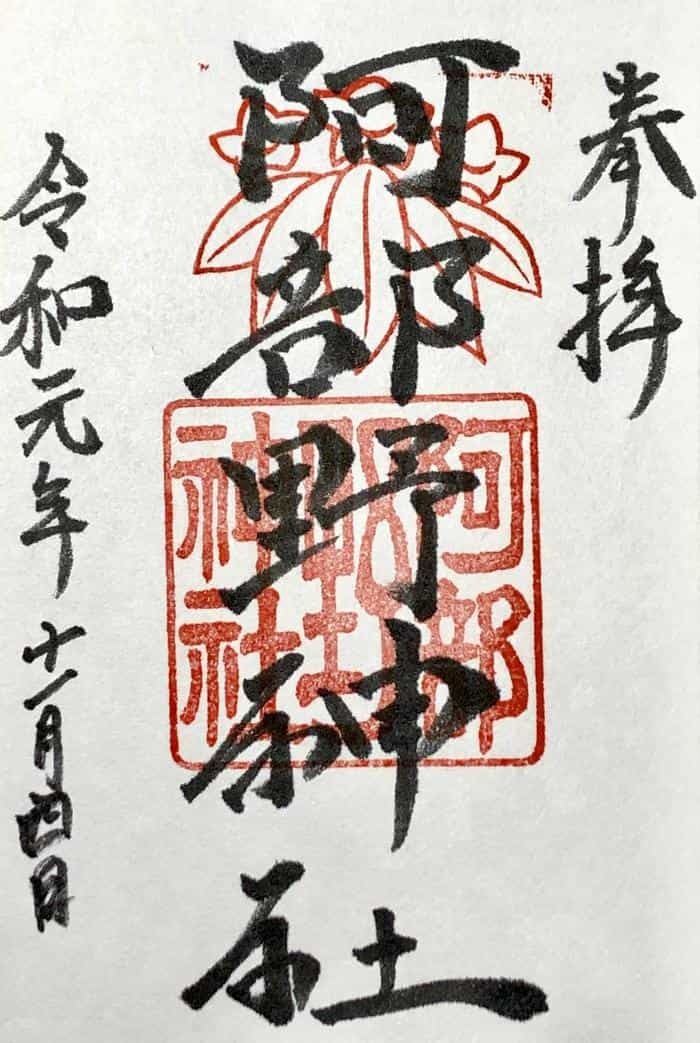 奉拝
阿部野神社
令和元年十一月四日
阿部
野
神社